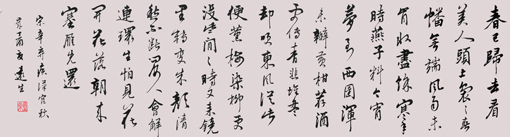 春已歸來看
美人頭上裊裊春
幡無端風雨未
肯收盡餘寒年
時燕子料今宵
夢到西園渾
未辦黃柑荐酒
更傳青韭堆盤
却笑東風從此
便薰梅染柳更
沒些閒閒時又來鏡
里轉變朱顏清
愁不斷問何人會解
連環生怕見花
開花落朝來
塞雁先還
宋辛棄疾漢宮